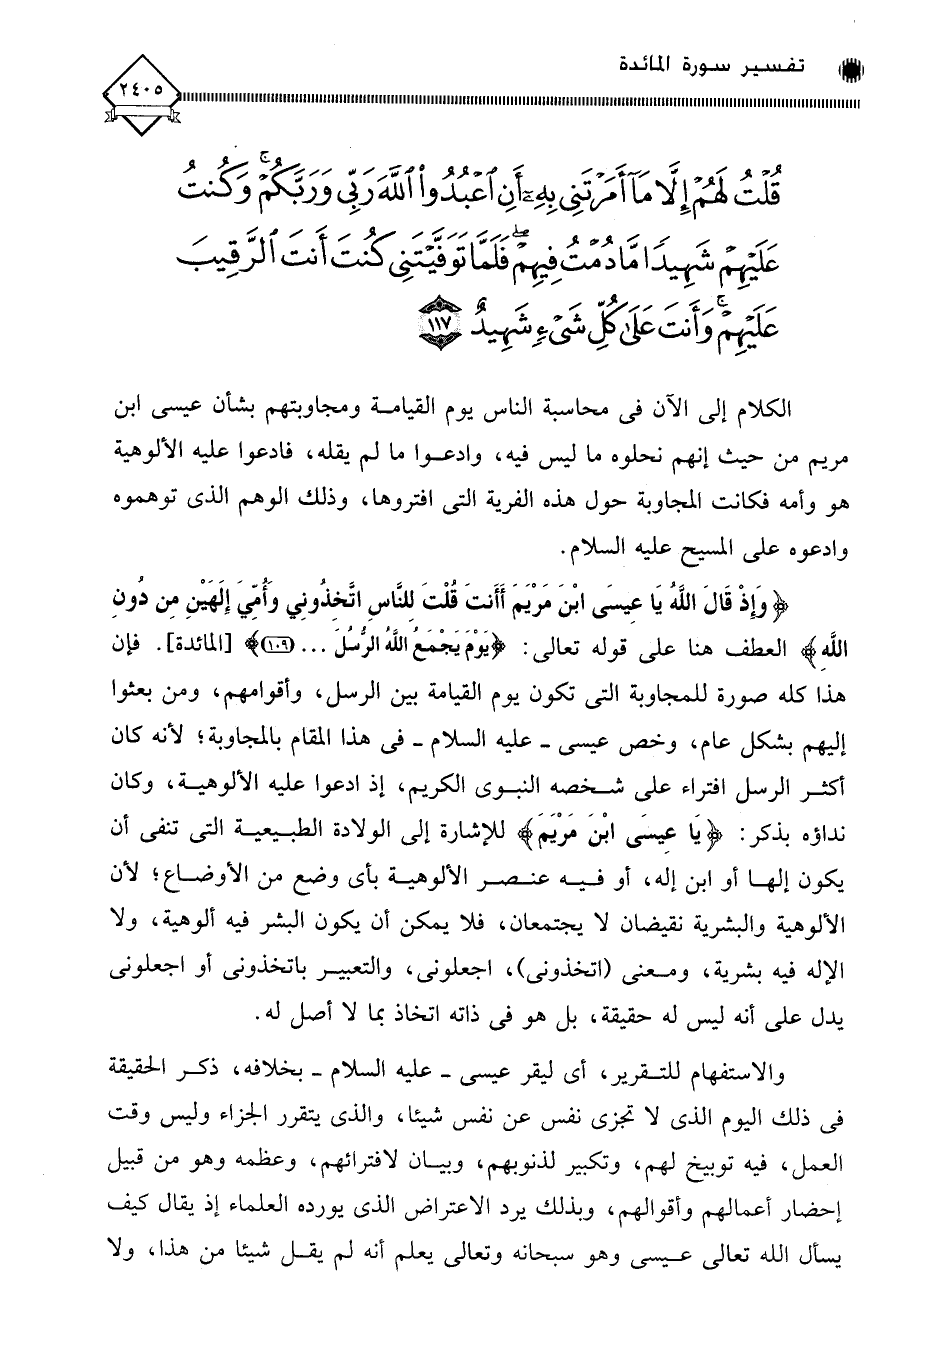 تفسير سورة المائدة
٢٤٠٥
قُلْتُ لَهُمْ إِلَّا مَآ أَمَرْتَنِى بِهِۦٓ أَنِ ٱعْبُدُوا۟ ٱللَّهَ رَبِّى وَرَبَّكُمْ ۚ وَكُنتُ
عَلَيْهِمْ شَهِيدًا مَّا دُمْتُ فِيهِمْ ۖ فَلَمَّا تَوَفَّيْتَنِى كُنتَ أَنتَ ٱلرَّقِيبَ
عَلَيْهِمْ ۚ وَأَنتَ عَلَىٰ كُلِّ شَىْءٍ شَهِيدٌ ١١٧
الكلام إلى الآن فى محاسبة الناس يوم القيامة ومجاوبتهم بشأن عيسى ابن
مريم من حيث إنهم نحلوه ما ليس فيه، وادعوا ما لم يقله، فادعوا عليه الألوهية
هو وأمه فكانت المجاوبة حول هذه الفرية التى افتروها، وذلك الوهم الذى توهموه
وادعوه على المسيح عليه السلام.
﴿وَإِذْ قَالَ اللَّهُ يَا عِيسَى ابْنَ مَرْيَمَ أَأَنتَ قُلْتَ لِلنَّاسِ اتَّخِذُونِي وَأُمِّيَ إِلَهَيْنِ مِن دُونِ
اللَّهِ﴾ العطف هنا على قوله تعالى: ﴿يَوْمَ يَجْمَعُ اللَّهُ الرُّسُلَ ... (١٠٩)﴾ [المائدة]. فإن
هذا كله صورة للمجاوبة التى تكون يوم القيامة بين الرسل، وأقوامهم، ومن بعثوا
إليهم بشكل عام، وخص عيسى ـ عليه السلام ـ فى هذا المقام بالمجاوبة؛ لأنه كان
أكثر الرسل افتراء على شخصه النبوى الكريم، إذ ادعوا عليه الألوهية، وكان
نداؤه بذكر: ﴿يَا عِيسَى ابْنَ مَرْيَمَ﴾ للإشارة إلى الولادة الطبيعية التى تنفى أن
يكون إلها أو ابن إله، أو فيه عنصر الألوهية بأى وضع من الأوضاع؛ لأن
الألوهية والبشرية نقيضان لا يجتمعان، فلا يمكن أن يكون البشر فيه ألوهية، ولا
الإله فيه بشرية، ومعنى (اتخذونى)، اجعلونى، والتعبير باتخذونى أو اجعلونى
يدل على أنه ليس له حقيقة، بل هو فى ذاته اتخاذ بما لا أصل له.
والاستفهام للتقرير، أى ليقر عيسى ـ عليه السلام ـ بخلافه، ذكر الحقيقة
فى ذلك اليوم الذى لا تجزى نفس عن نفس شيئا، والذى يتقرر الجزاء وليس وقت
العمل، فيه توبيخ لهم، وتكبير لذنوبهم، وبيان لافترائهم، وعظمه وهو من قبيل
إحضار أعمالهم وأقوالهم، وبذلك يرد الاعتراض الذى يورده العلماء إذ يقال كيف
يسأل الله تعالى عيسى وهو سبحانه وتعالى يعلم أنه لم يقل شيئا من هذا، ولا